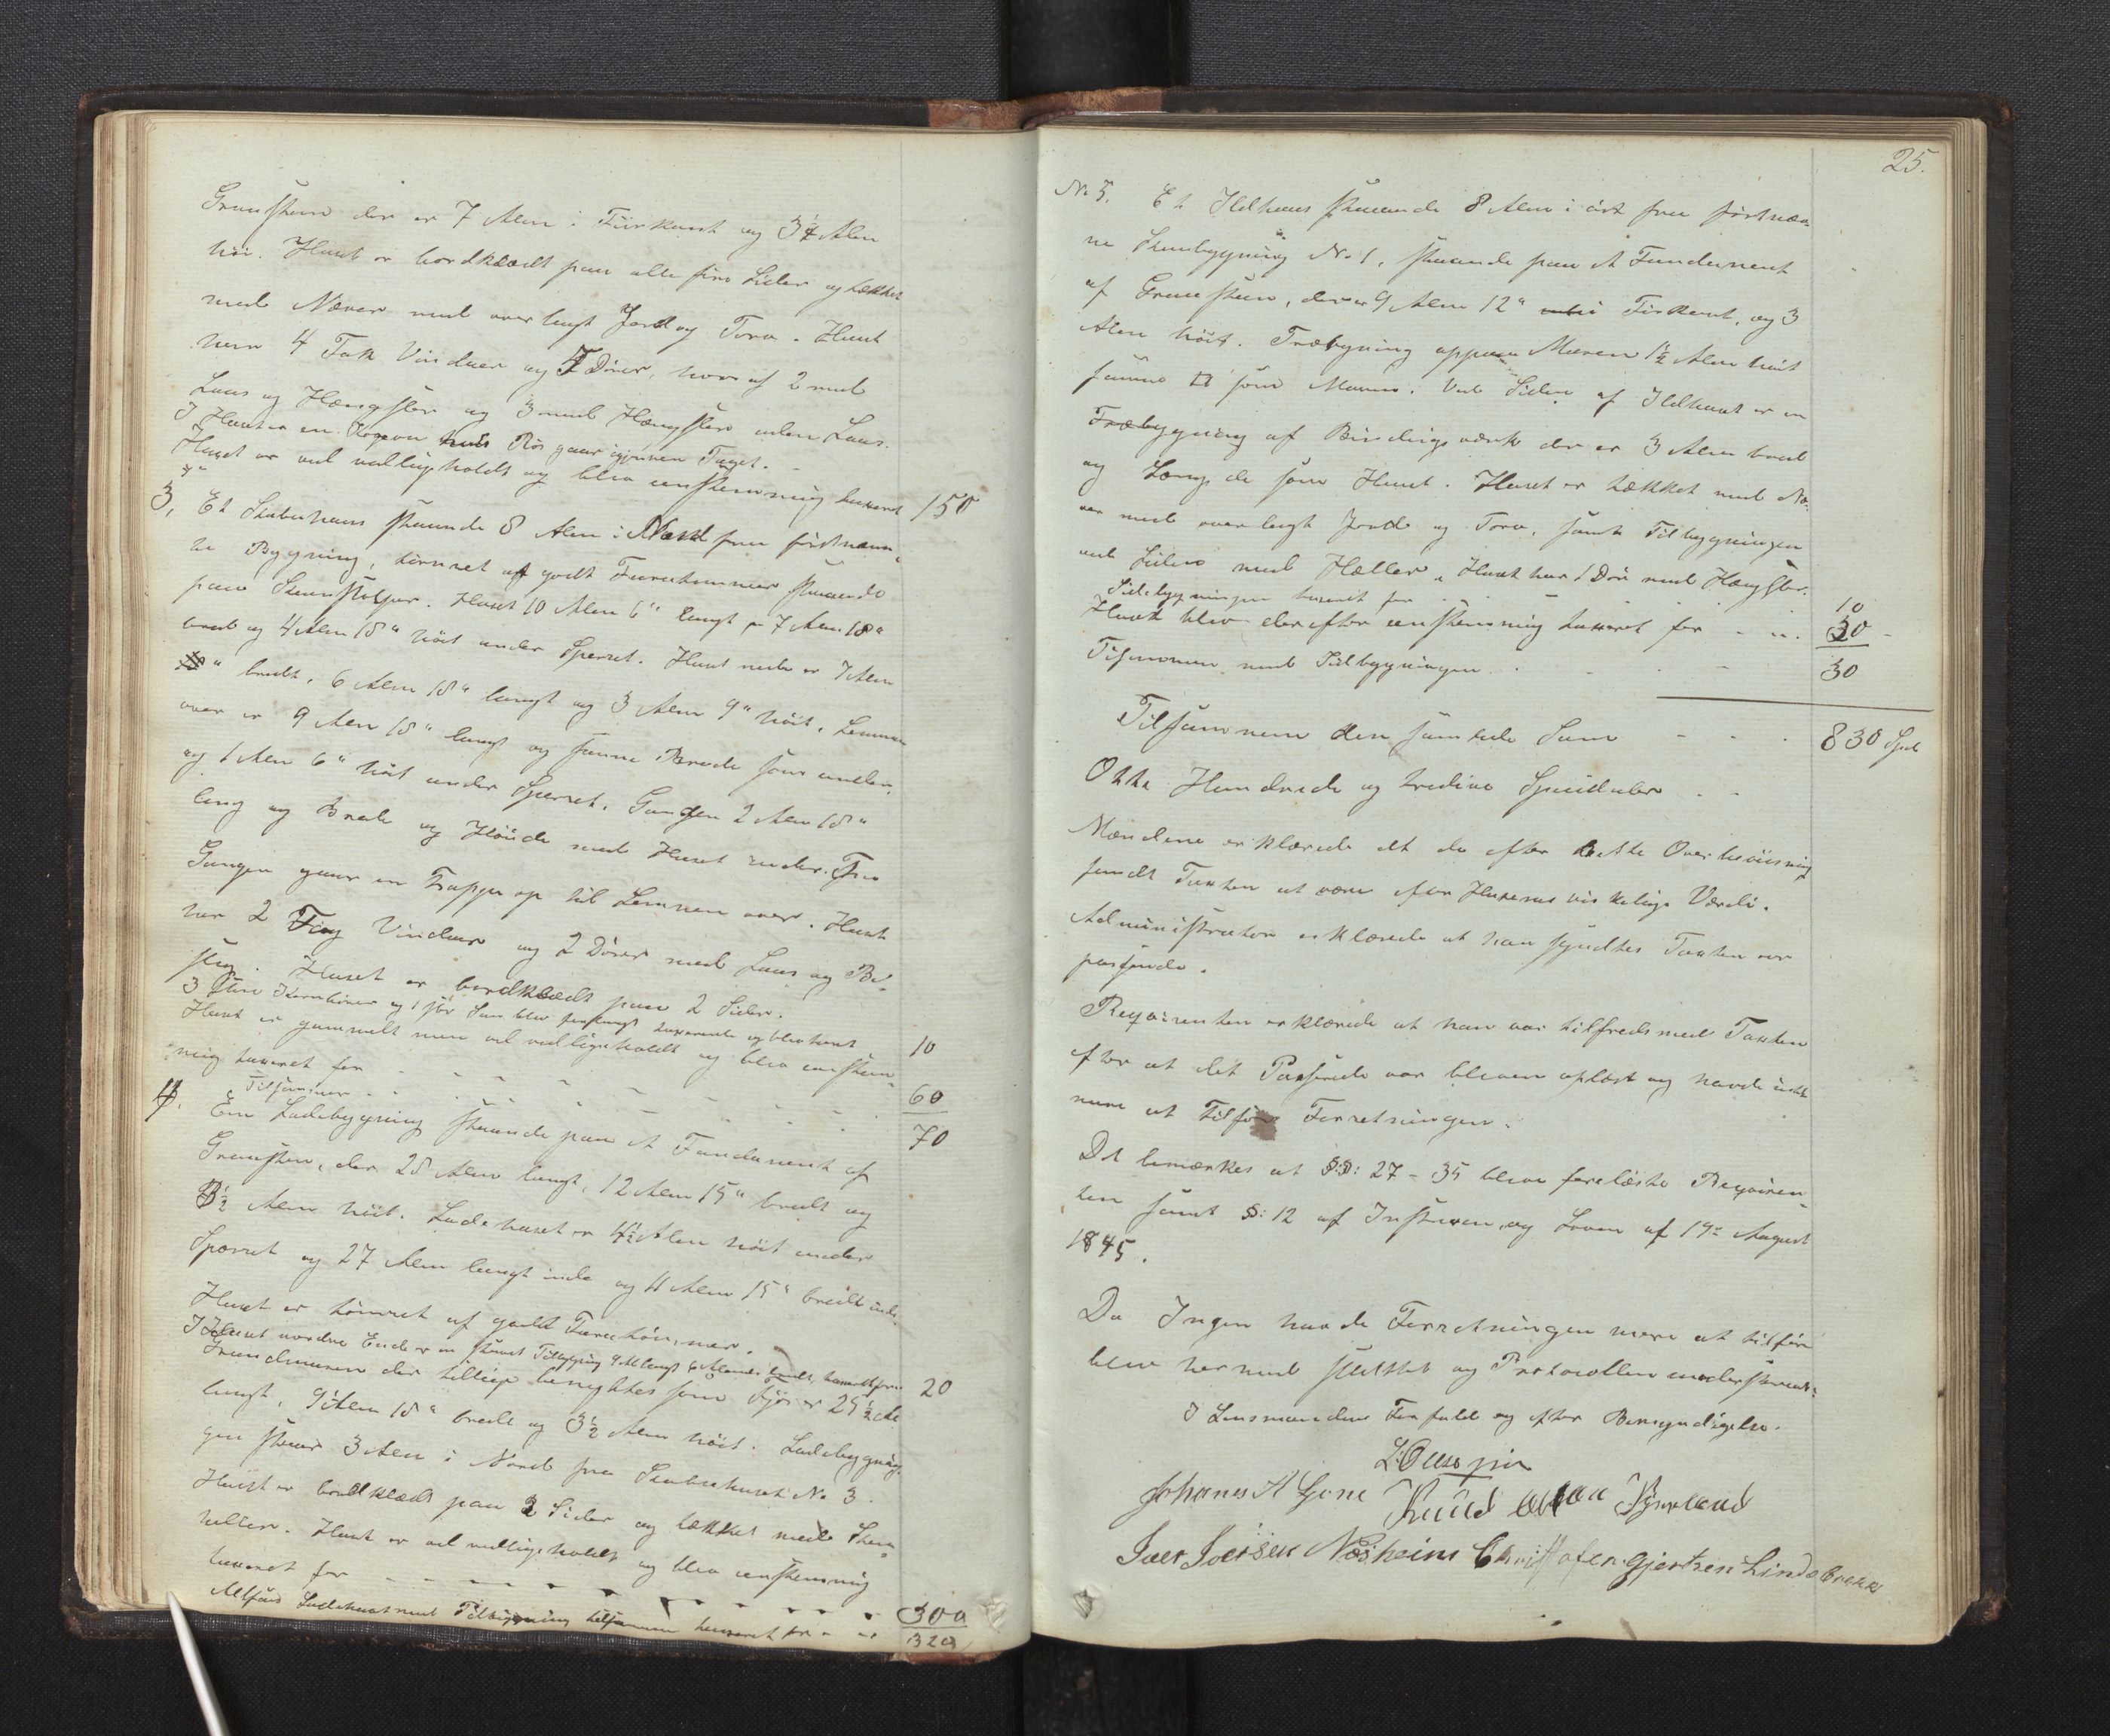 Graasteen der er 7 Alen i Fiirkant og 3 1/4 Alen
høi. Huset er bordklædt paa alle fire Sider og tækket
med Næver med overlagt Jord og Torv. Huset
har 4 Fak Vinduer og 5 Dører, hvoraf 2 med
Laas og Hængsler og 3 med Hængsler uden Laas.
I Huset er en Kogeovn hvis Rør gaar igjennem Taget.
Huset er vel vedligeholdt og blev enstemmig taxeret 150
3, Et Stabehuus staaende 8 Alen i Nord fra førstnævn-
te Bygning, tømret af godt Furutømmer staaende
paa Steenstolper. Huset 10 Alen 6" langt 7 Alen 18"
bredt og 4 Alen 18" høit under Sperret. Huset nede er 7 Alen
" bredt, 6 Alen 18" langt og 3 Alen 9" høit. Lemmen
over er 9 Alen 18" langt og samme Brede som under
og 1 Alen 6" høit under Sperret. Gangen 2 Alen 18"
lang og Brede og Høide med Huset under. Fra
Gangen gaar en Trappe op til Lemmen over. Huset
har 2 Fag Vinduer og 2 Dører med Laas og Be-
slag. Huset er bordklædt paa 2 Sider.
3 store Kornbinger og 1 før blev taxerede og blev 10
Huset er gammelt men vel vedligeholdt og blev enstem-
mig taxeret for 60
Tilsammen 70
4. Een Ladebygning staaende paa et Fundament af
Graasteen, der 28 Alen langt, 12 Alen 15" bredt og
3 1/2 Alen høit. Ladehuset er 4 1/2 Alen høit under
Sperret og 27 Alen langt inde og 11 Alen 15" bredt inde.
Huset er tømret af godt Furutømmer.
I Huset nordre Ende er en Tilbygning 9 Al langt 6 Alen bredt, taxeret for 20
Grundmuren der tillige benyttes som Fjøs er 25 1/2 Al
langt, 9 Alen 18" bredt og 3 1/2 Alen høit. Ladebygnin-
gen staar 3 Alen i Nord fra Stabehuset No 3.
Huset er bordklædt paa 2 Sider og tækket med Steen-
heller. Huset er vel vedligeholdt og blev enstemmig
taxeret for 300
Altsaa Ladehuset med Tilbygning tilsammen taxeret for 320
25.
No 5. Et Ildhuus staaende 8 Alen i øst fra førstnæv-
ne Stuebygning No 1, staaende paa et Fundament
af Graasteen, der er 9 Alen 12" i Firkant, og 3
Alen høit. Træbygning oppaa Muren 1 1/2 Alen høit
samme som Muren. Ved Siden af Ildhuset er en
Træbygning af Bindingsværk der er 3 Alen bred
og Længde som Huset. Huset er tækket med Næ-
ver med overlagt Jord og Torv, samt Tilbygningen
ved Siden med Heller. Huset har 1 Dør med Hængsler.
Sidebygningen taxeret for 10
Huset blev derefter enstemmig taxeret for 20
Tilsammen med Sidbygningen 30
Tilsammen den samlede Sum 830 Spd
Otte Hundrede og tredive Speciedaler
Mændene erklærede at de efter bedste Overbeviisning
fandt Taxten at være efter Husenes virkelige Værdi.
Administrator erklærede at han syndtes Taxten var
passende.
Reqvirenten erklærede at han var tilfreds med Taxten
efter at det Passerede var bleven oplæst og havde intet
mere at tilføre Forretningen.
Det bemærkes at §§: 27 - 35 bleve forelæste Reqviren-
ten samt §: 12 af Instruxen og Loven af 19de August
1845.
Da Ingen havde Forretningen mere at tilføre
blev her med sluttet og Protocollen underskreven:
I Lensmandens Forfald og efter Bemyndigelse.
Johanes A Gjone Knud
Iver Iversen Næsheim Christofer Gjertsen Lindebrekke